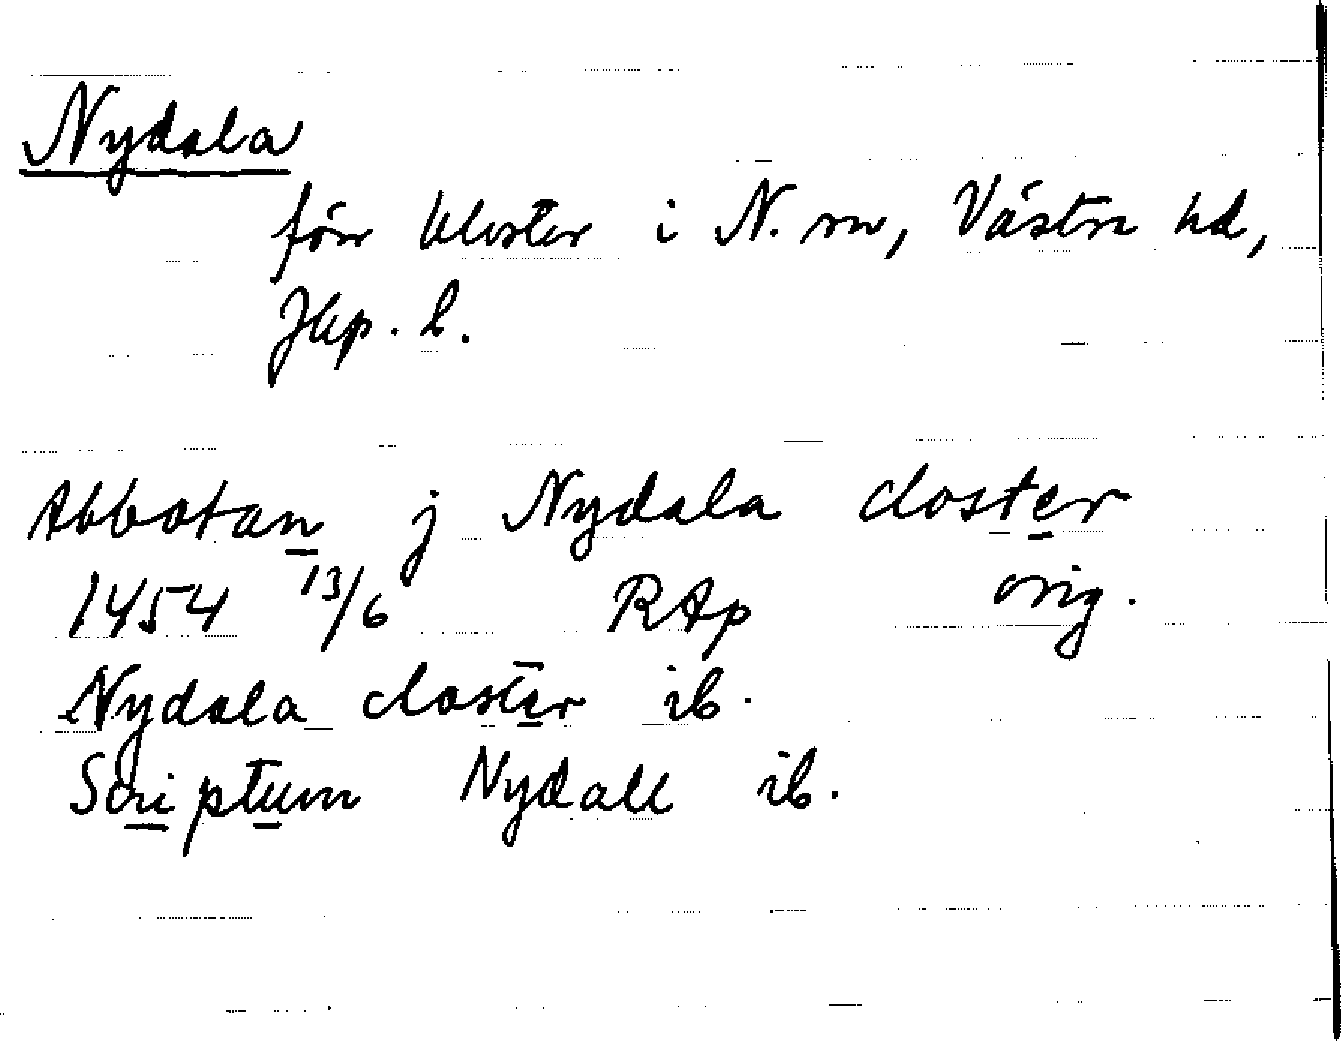 Nydala
förr kloster i N. sn, Västra hd,
Jkp. l.
Abbotan j Nydala closter
1454 13/6 RAp orig.
Nydala closter ib.
Scriptum Nydall ib.